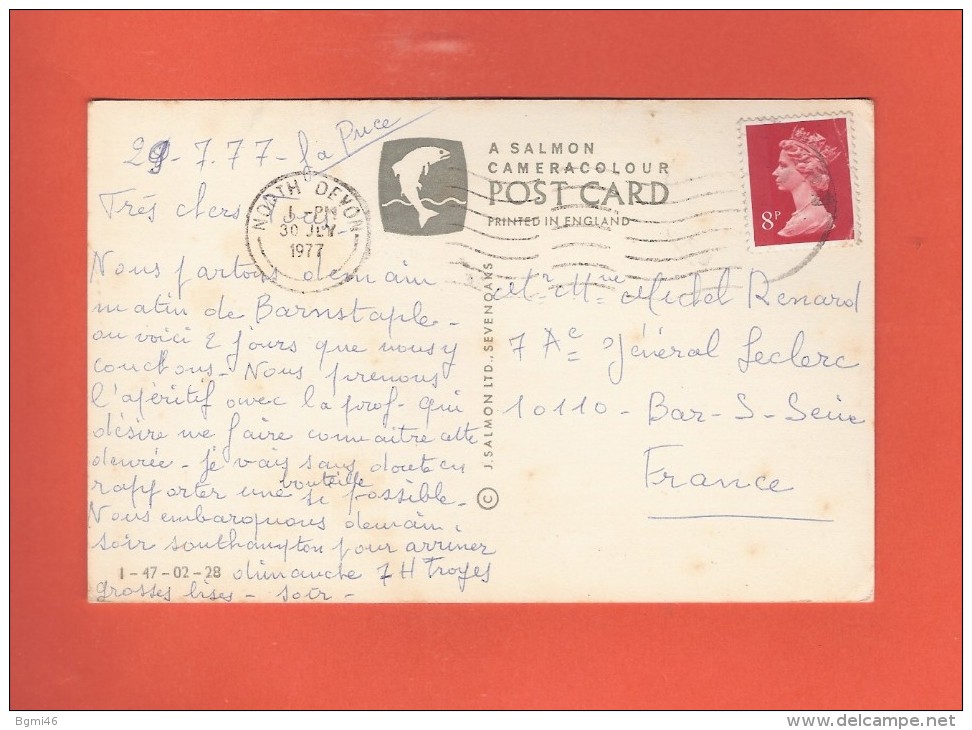 29-7.77- La Puce
Très chers
A SALMON
CAMERACOLOUR
POST CARD
PRINTED IN ENGLAND
NORTH DEVON
30 JLY
1977
8P
Nous partons demain
matin de Barnstaple -
ou voici 2 jours que nous y
couchons - Nous prenons
l'apéritif avec la prof - qui
désire me faire connaitre cette
denrée - je vais sans doute en
rapporter une bouteille si possible.
Nous embarquons demain
soir southampton pour arriver
dimanche 7H Troyes
1-47-02-28
grosses bises - soir -
© J. SALMON LTD., SEVENOAKS
Mr Mme Michel Renard
7 Ac Général Leclerc
10110 - Bar-S-Seine
France
Bgmi46
www.delcampe.net